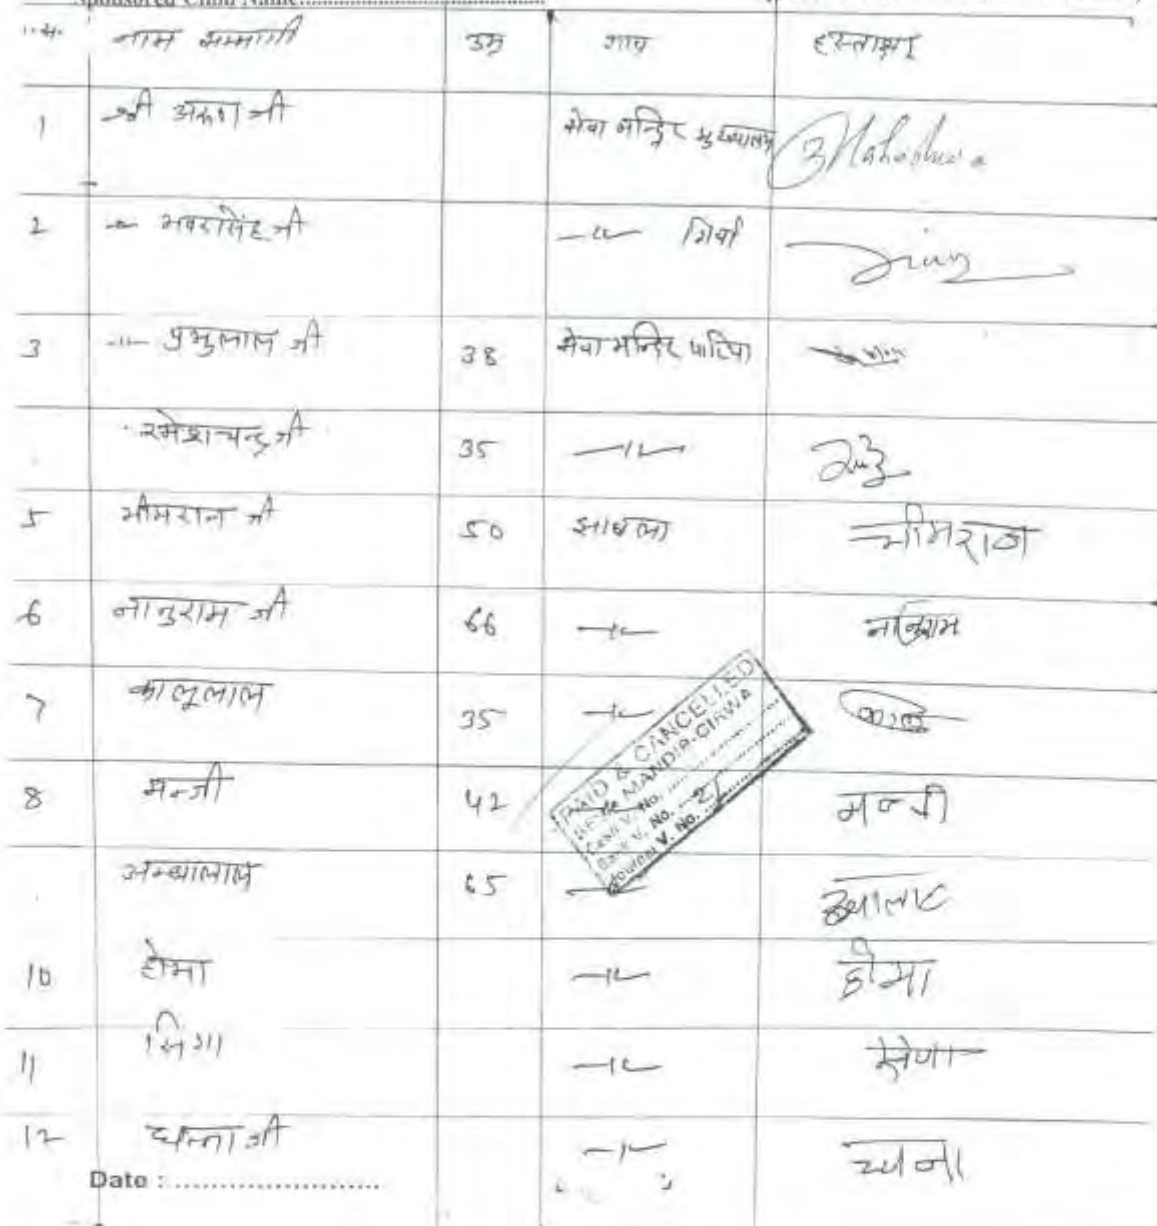 Sponsored Child Name
नाम सम्भागी उम्र गाव हस्ताक्षर
1 श्री अरूण जी सेवा मन्दिर मुख्यालय
2 -"- भवरसिंह जी -"- गिर्वा
3 -"- प्रभुलाल जी 38 सेवा मन्दिर पाटिया
रमेशचन्द्र जी 35 -"-
5 भीमराज जी 50 झाबला भीमराज
6 नानुराम जी 66 -"- नानुराम
7 कालूलाल 35 -"-
8 मन्जी 42 मन्जी
अम्बालाल 65
10 होमा -"- होमा
11 -"-
12 धन्ना जी -"- धना
PAID & CANCELLED
SEVA MANDIR-GIRWA
Cash V. No.
Bank V. No. 21
Journal V. No.
Date :